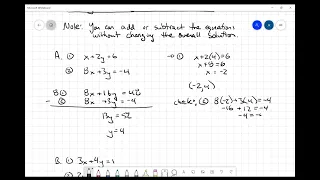 Note: You can add or subtract the equations
without changing the overall solution.
A. ① x+2y=6
② 8x+3y=-4
8① 8x+16y=48
- ② 8x+3y=-4
13y=52
y=4
→① x+2(4)=6
x+8=6
x=-2
(-2,4)
check, ② 8(-2)+3(4)=-4
-16+12=-4
-4=-4
B. ① 3x+4y=1